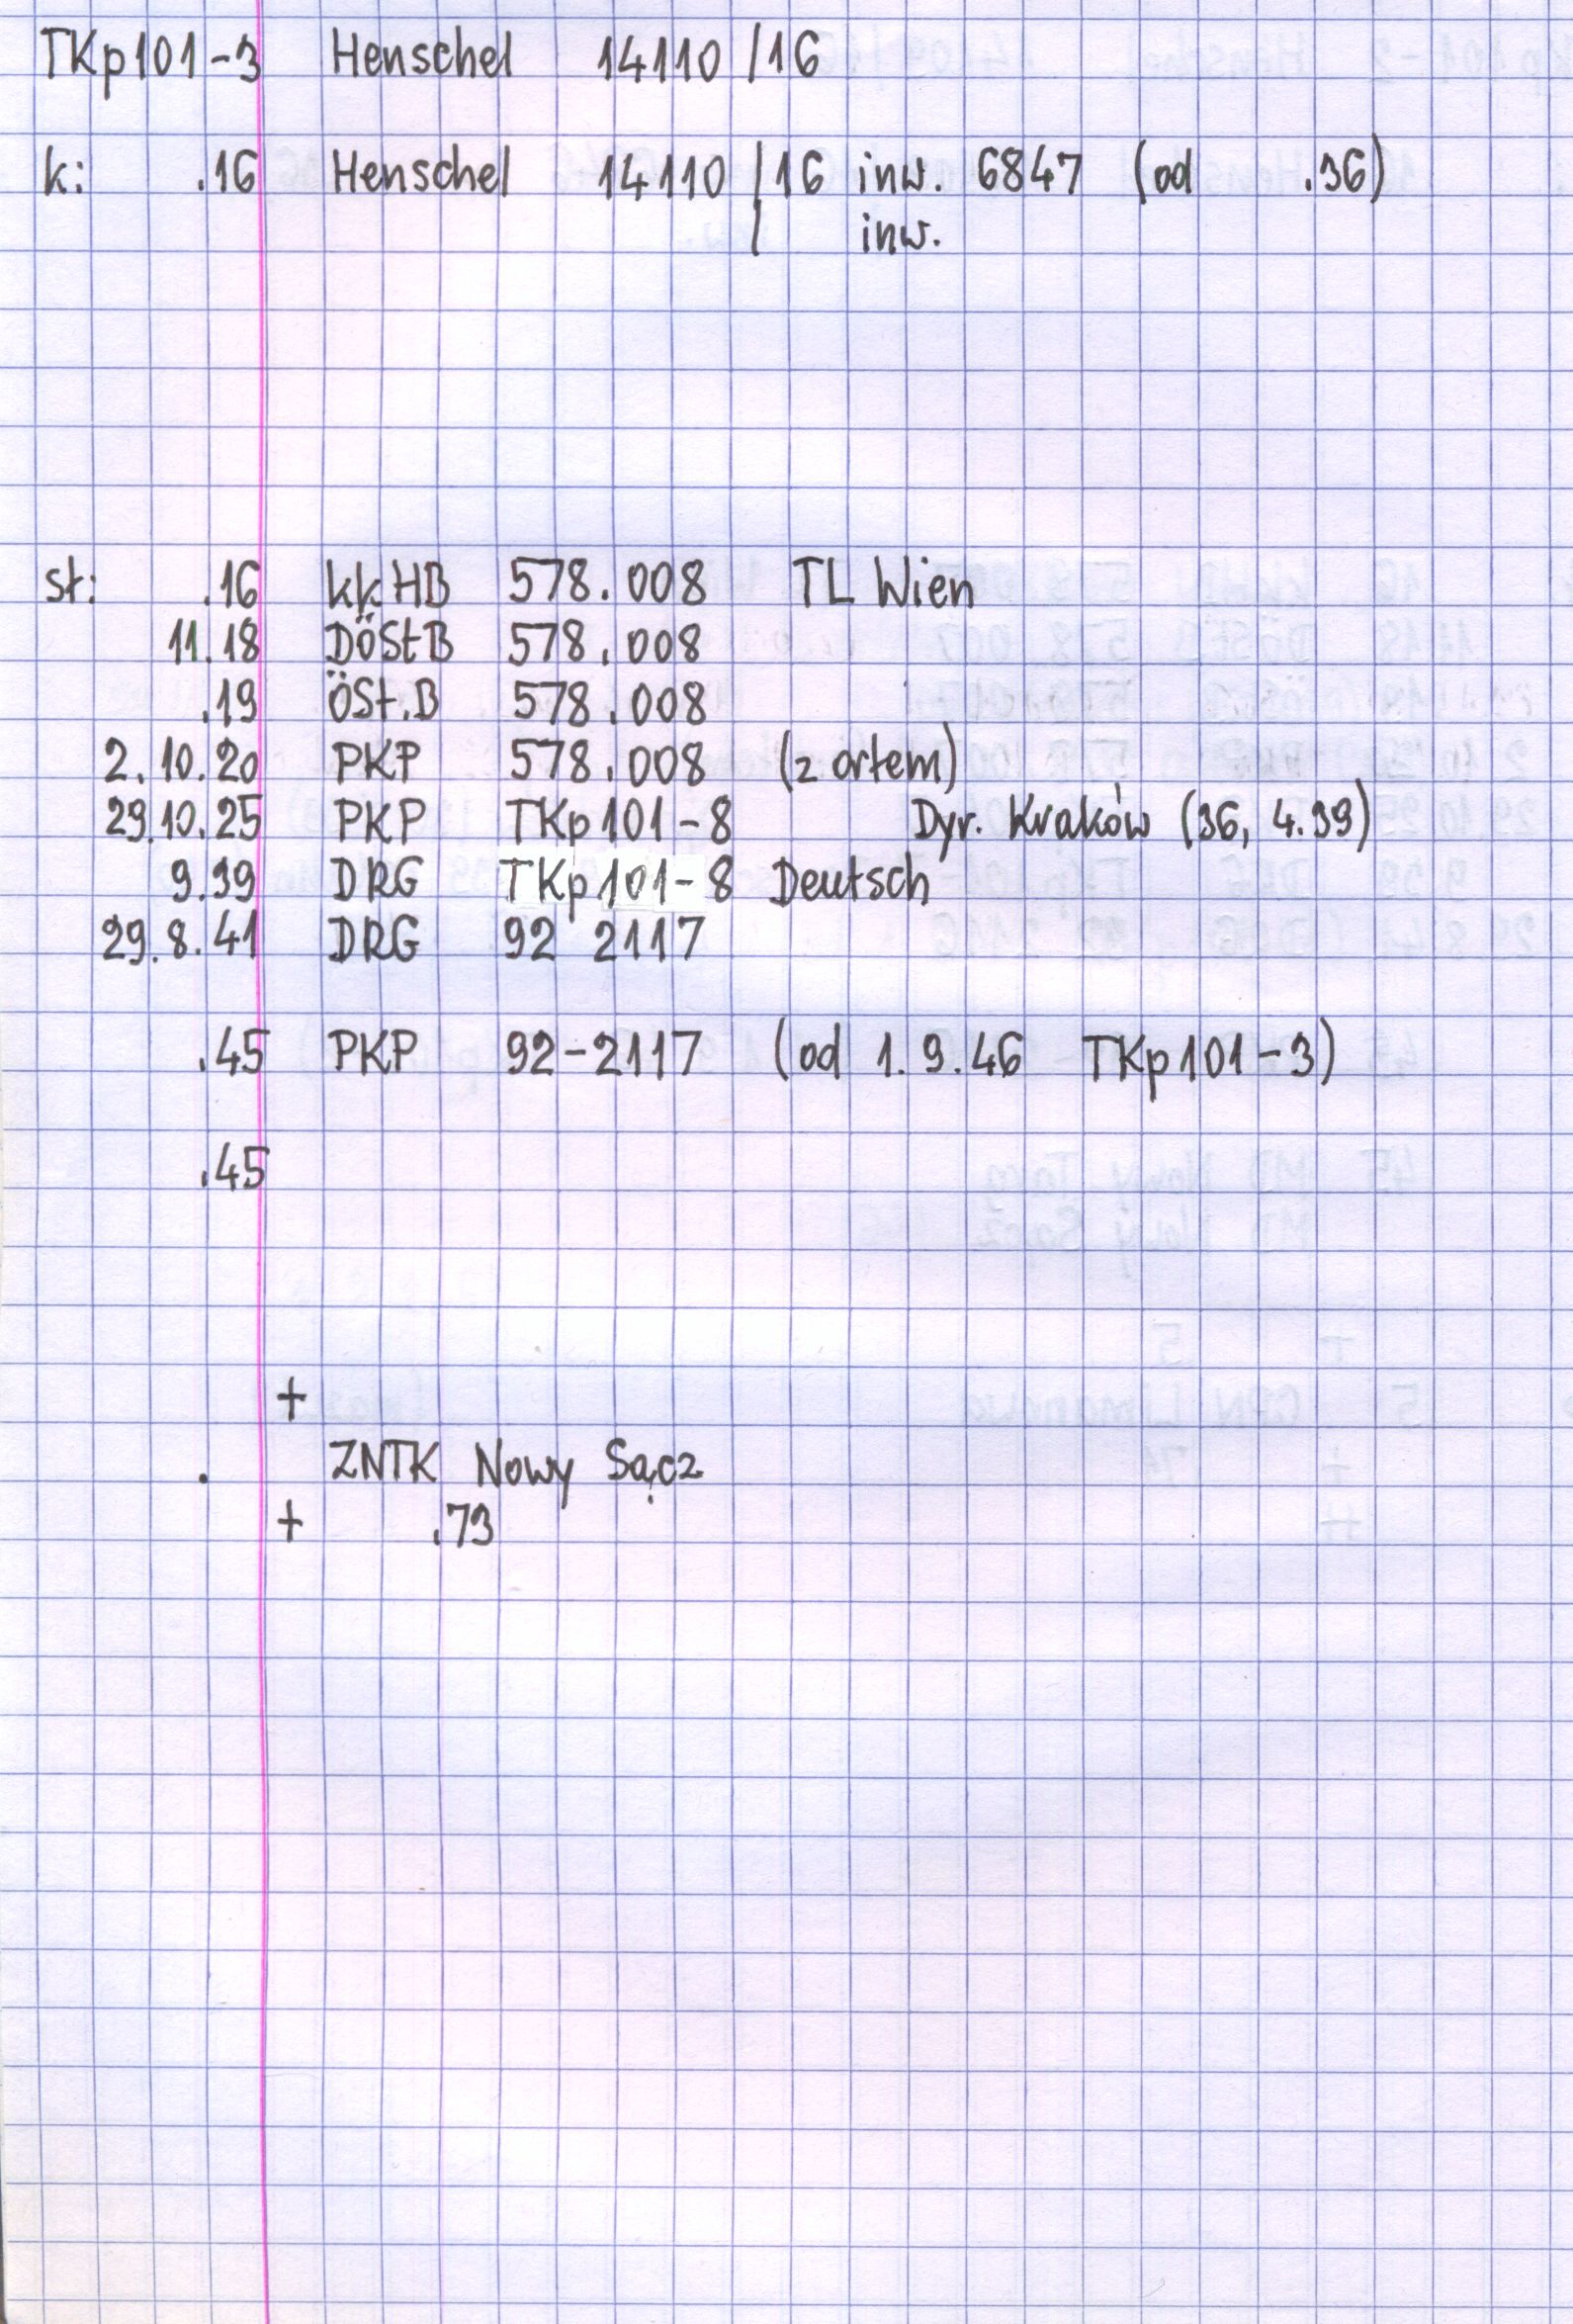 TKp101-3 Henschel 14110/16
k: .16 Henschel 14110/16 inw. 6847 (od .36)
/ inw.
st: .16 kkHB 578.008 TL Wien
11.18 DÖStB 578.008
.19 ÖSt.B 578.008
2.10.20 PKP 578.008 (z ortem)
29.10.25 PKP TKp101-8 Dyr. Kraków (36, 4.39)
9.39 DRG TKp101-8 Deutsch
29.8.41 DRG 92 2117
.45 PKP 92-2117 (od 1.9.46 TKp101-3)
.45
+
. ZNTK Nowy Sącz
+ .73